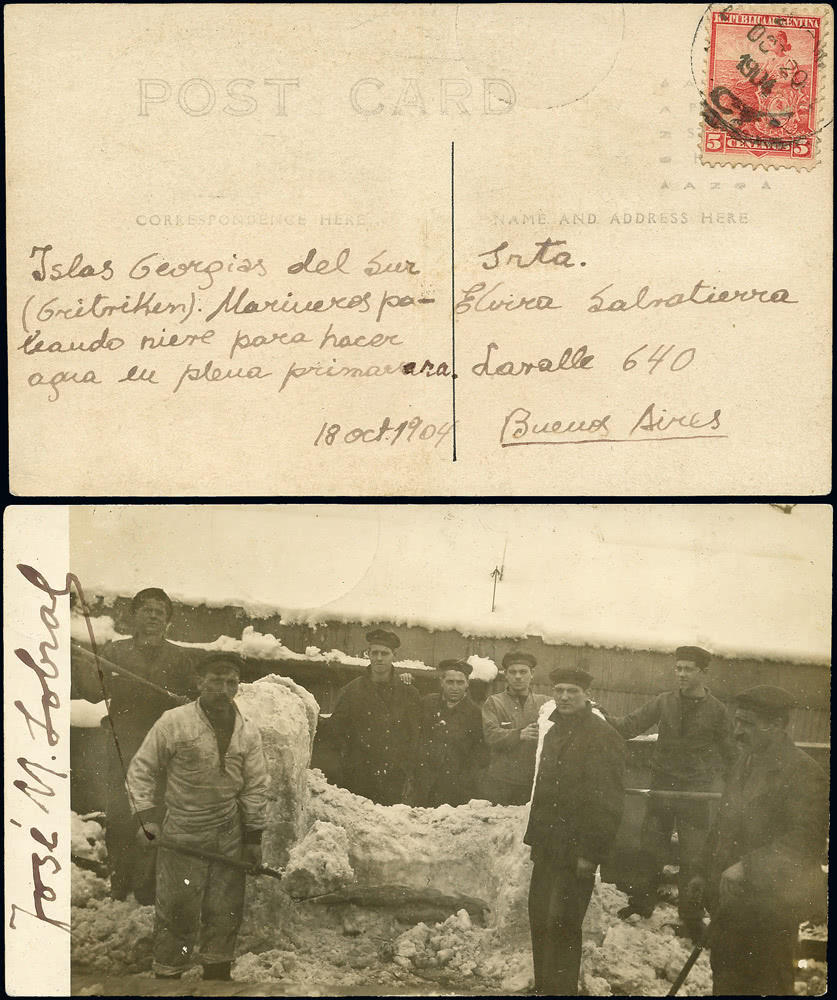 POST CARD
REPÚBLICA ARGENTINA
OCT 20
1904
5 CENTAVOS 5
AZOA
CORRESPONDENCE HERE
NAME AND ADDRESS HERE
Islas Georgias del Sur
(Gritviken). Marineros pa-
leando nieve para hacer
agua en plena primavera.
18 oct. 1904
Srta.
Elvira Salvatierra
Lavalle 640
Buenos Aires
José M. Sobral